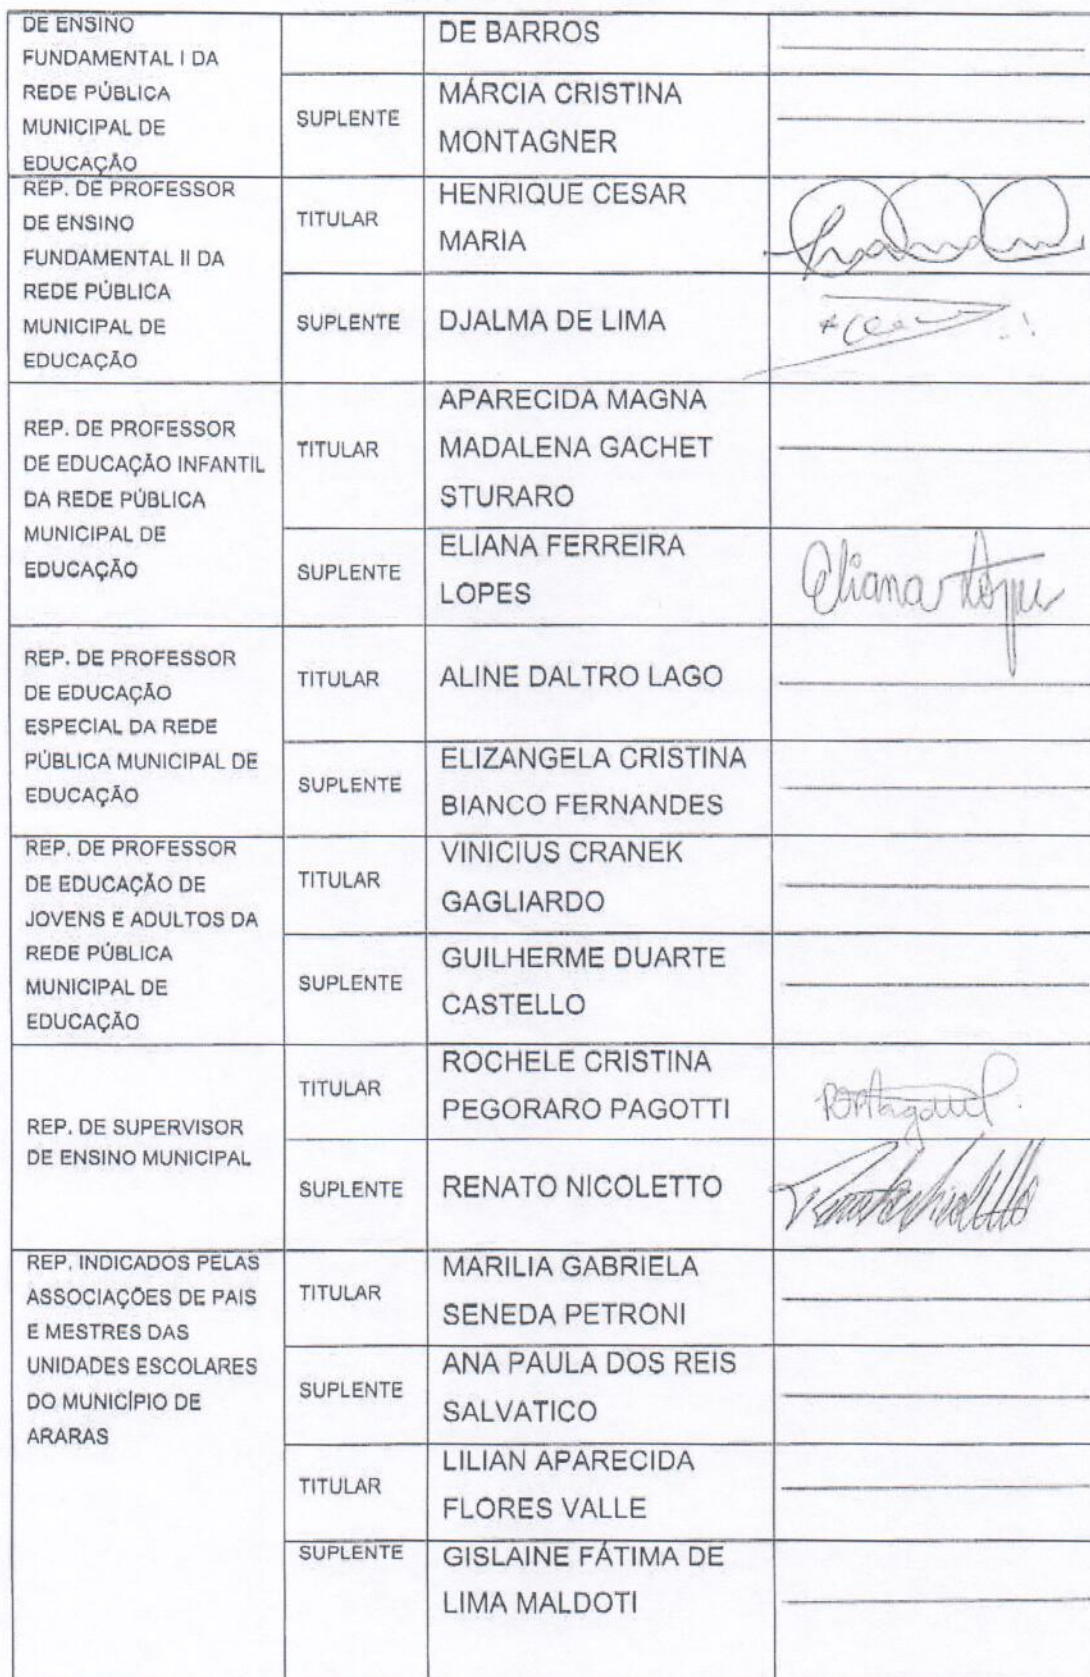 DE ENSINO
FUNDAMENTAL I DA
REDE PÚBLICA
MUNICIPAL DE
EDUCAÇÃO
DE BARROS
SUPLENTE
MÁRCIA CRISTINA
MONTAGNER
REP. DE PROFESSOR
DE ENSINO
FUNDAMENTAL II DA
REDE PÚBLICA
MUNICIPAL DE
EDUCAÇÃO
TITULAR
HENRIQUE CESAR
MARIA
SUPLENTE
DJALMA DE LIMA
REP. DE PROFESSOR
DE EDUCAÇÃO INFANTIL
DA REDE PÚBLICA
MUNICIPAL DE
EDUCAÇÃO
TITULAR
APARECIDA MAGNA
MADALENA GACHET
STURARO
SUPLENTE
ELIANA FERREIRA
LOPES
Eliana Lopes
REP. DE PROFESSOR
DE EDUCAÇÃO
ESPECIAL DA REDE
PÚBLICA MUNICIPAL DE
EDUCAÇÃO
TITULAR
ALINE DALTRO LAGO
SUPLENTE
ELIZANGELA CRISTINA
BIANCO FERNANDES
REP. DE PROFESSOR
DE EDUCAÇÃO DE
JOVENS E ADULTOS DA
REDE PÚBLICA
MUNICIPAL DE
EDUCAÇÃO
TITULAR
VINICIUS CRANEK
GAGLIARDO
SUPLENTE
GUILHERME DUARTE
CASTELLO
REP. DE SUPERVISOR
DE ENSINO MUNICIPAL
TITULAR
ROCHELE CRISTINA
PEGORARO PAGOTTI
SUPLENTE
RENATO NICOLETTO
REP. INDICADOS PELAS
ASSOCIAÇÕES DE PAIS
E MESTRES DAS
UNIDADES ESCOLARES
DO MUNICÍPIO DE
ARARAS
TITULAR
MARILIA GABRIELA
SENEDA PETRONI
SUPLENTE
ANA PAULA DOS REIS
SALVATICO
TITULAR
LILIAN APARECIDA
FLORES VALLE
SUPLENTE
GISLAINE FÁTIMA DE
LIMA MALDOTI